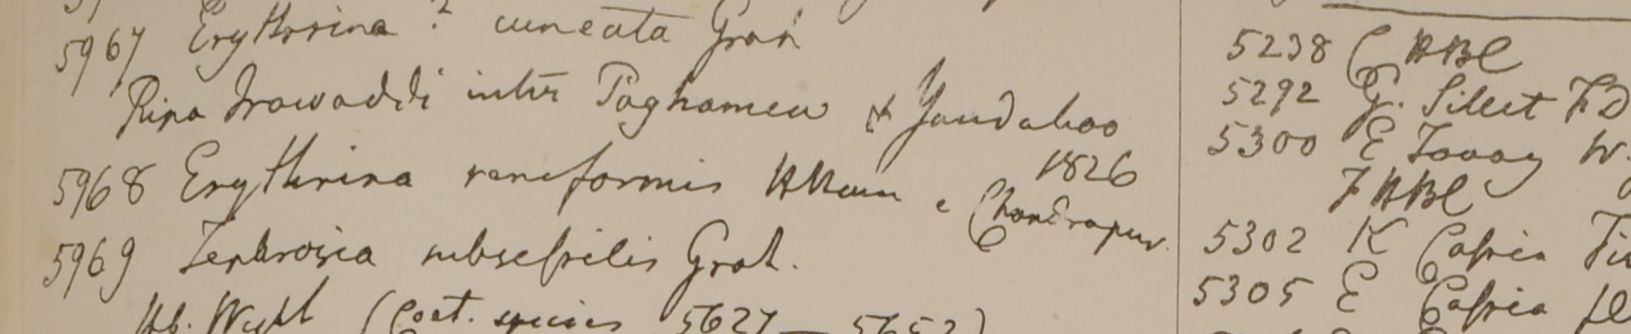 5967 Erythrina ? cuneata Grah
Ripa Irawaddi inter Paghamew & Yandaboo
1826
5968 Erythrina reniformis e Chandrapur.
5969 Tephrosia subsessilis Grah.
Hb. Wight (Cont. species 5627 — 5652)
5238 C HBC
5292 G. Sillet FD
5300 E Tavoy W.
F HBC
5302 K Cassia
5305 E Cassia